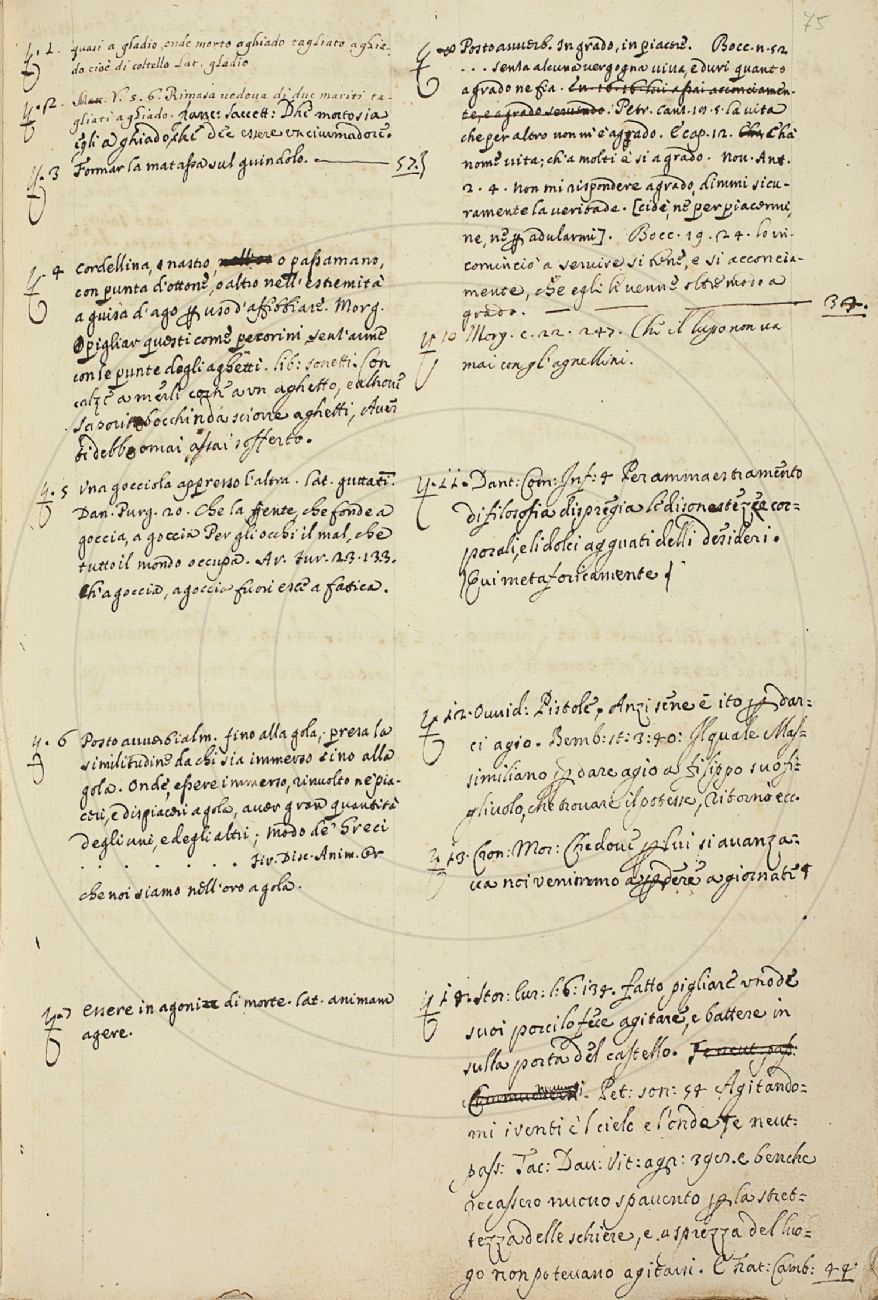 75
y. 1. quasi a gladio, onde morto aghiado tagliato aghia-
do cioè di coltello Lat. gladio
y. 2. V. 5. 6. Rimasa vedova di due mariti ta-
gliati aghiado. Franc: Sacch: Dhe morto sia
egli a ghiado, che de essere un ciurmadore.
y. 3 Formar la matassa sul guindolo. 57.}
y. 4 Cordellina, o nastro, o passamano,
con punta d'ottone, o altro nell'estremità
a guisa d'ago ꝑ uso d'affibbiare. Morg.
O pigliar questi come pecorini senl'avime
con le punte degli aghetti. lib: sonetti. Con
calze a merli con a un aghetto, e
bocchin da sciorre aghetti, Aver
ti debbe omai assai sofferto.
y. 5 Una gocciola appresso l'altra. lat. guttatī.
Dan. Purg. 20. Che la gente, che fonde a
goccia, a goccia Per gli occhi il mal, che
tutto il mondo occupa. Ar. Fur. 23. 133.
Ch'a goccia, a goccia fuori esce a fatica.
y. 6 Posto avverbialm. fino alla gola, presa la
similitudine da chi sia immerso sino alla
gola. Onde, essere immerso, rinvolto ne' pia-
ceri, e dispiaceri a gola, aver gran quantità
degli uni, e degli altri; modo de' Greci
. . . . . . Fir. Disc. Anim. Or
che noi siamo nell'oro a gola.
y. 7 Essere in agonia di morte. lat. animam
agere.
y. Posto avverb. In grado, in piacere. Bocc. n. 52
. . . senza alcuna vergogna viva, e duri quanto
a grado ne fia. En 10. 16 lui assai acconciamen-
te, e a grado servendo. Petr. canz. 19. 5. la vita
che per altro non m'è a grado. E cap. 12. C'hà
nome vita; ch'a molti è sì a grado. Nov. Ant.
2. 4. Non mi rispondere a grado, dimmi sicu-
ramente la veritade. [cioè, ne per piacermi,
ne, ne ꝑ adularmi]. Bocc. 19. 24. lo in-
cominciò a servire sì bene, e sì acconcia-
mente, che egli li venne oltre modo a
grado. 34.
y. 10 Morg. c. 22. 247. Che il lupo non va
mai con gl'agnellini.
y. 11. Dant: Com: Inf: 4 Per ammaestramēto
di filosofia dispregia le disonestezze cor=
porali, e li dolci agguati delli desideri.
[Qui metaforicamente]
y. 12. Ouuid: Pistole, Anzi sene è ito ꝑ dar=
ci agio. Bemb: st: 3: 40: Il quale Mas=
similiano ꝑ dare agio a Filippo suo fi=
gliuolo, che trovare il potesse, Ritornò ecc.
y. 13. Cron: Mor: Che dove ꝑ lui si avanza=
va noi venimmo a ꝑdere a giornate
y. 14. Stor: Eur: l: 6: 134. fatto pigliare uno de
suoi porcilo fece agitare, e battere in
sulla porta del castello. Fe neut. pass:
Pet: son: 54 Agitando=
mi i venti e'l cielo e l'onde Fe neut:
pass: Tac: Dav: Vit: agr: 390. e benche
recassero nuovo spavento ꝑ la stret=
tezza delle schiere, e asprezza del luo=
go non potevano agitarsi. E Trat: Camb: 44